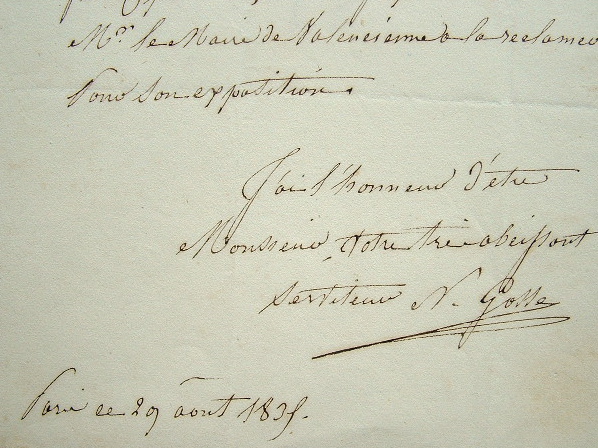 Mr. le Maire de Valencienne a la reclamer
Pour son exposition.
J'ai l'honneur d'être
Monsieur, Votre trè obeissant
serviteur N. Gosse
Paris ce 29 août 1835.